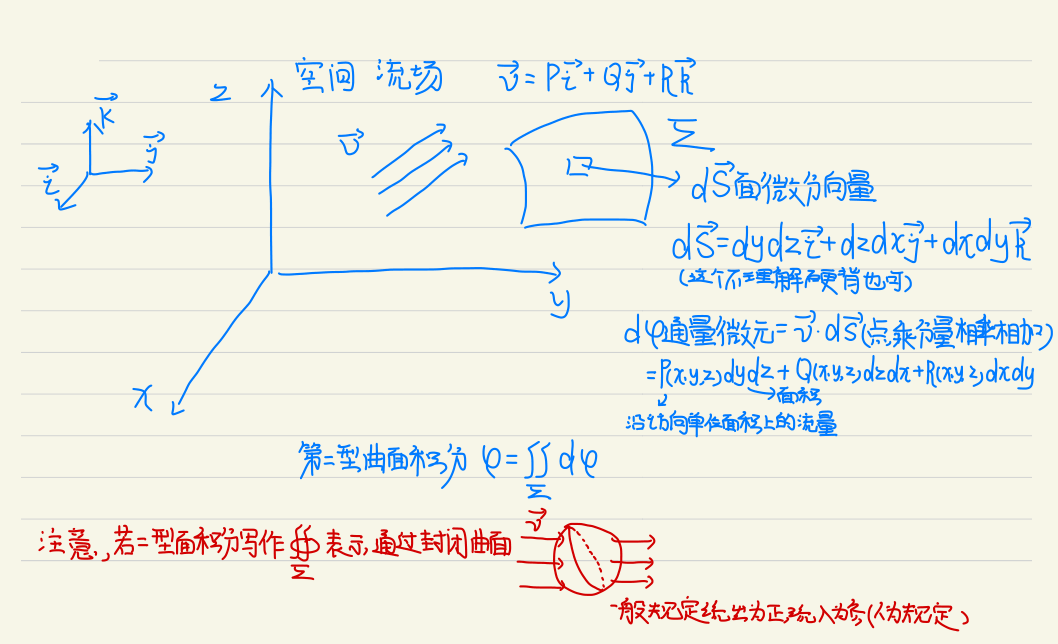 空间 流场 v⃗ = Pi⃗ + Qj⃗ + Rk⃗
z
k⃗
j⃗
i⃗
v⃗
Σ
dS⃗面微分向量
dS⃗=dydzi⃗+dzdxj⃗+dxdyk⃗
(这个不理解硬背也可)
y
x
dφ通量微元=v⃗·dS⃗(点乘分量相乘相加)
=P(x,y,z)dydz+Q(x,y,z)dzdx+R(x,y,z)dxdy
面积
沿i方向单位面积上的流量
第二型曲面积分 φ=∬dφ
Σ
注意,若二型面积分写作∯表示,通过封闭曲面
Σ
v⃗
一般规定流出为正,流入为负(人为规定)